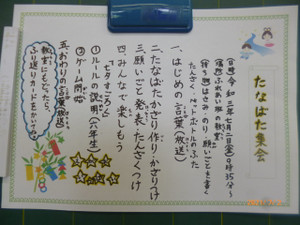 たなばた集会
(日時)令和三年七月二日(金)9時35分〜
(場所)ふれあい班の教室
(持ち物)はさみ・のり・願いごとを書く
たんざく・ペットボトルのふた
一、はじめの言葉(放送)
二、たなばたかざり作り・かざりつけ
三、願いごと発表・たんざくつけ
四、みんなで楽しもう
「七夕すごろく」
①ルールの説明(六年生)
②ゲーム開始
五、おわりの言葉(放送)
教室にもどったら、
ふり返りカードをかいてね